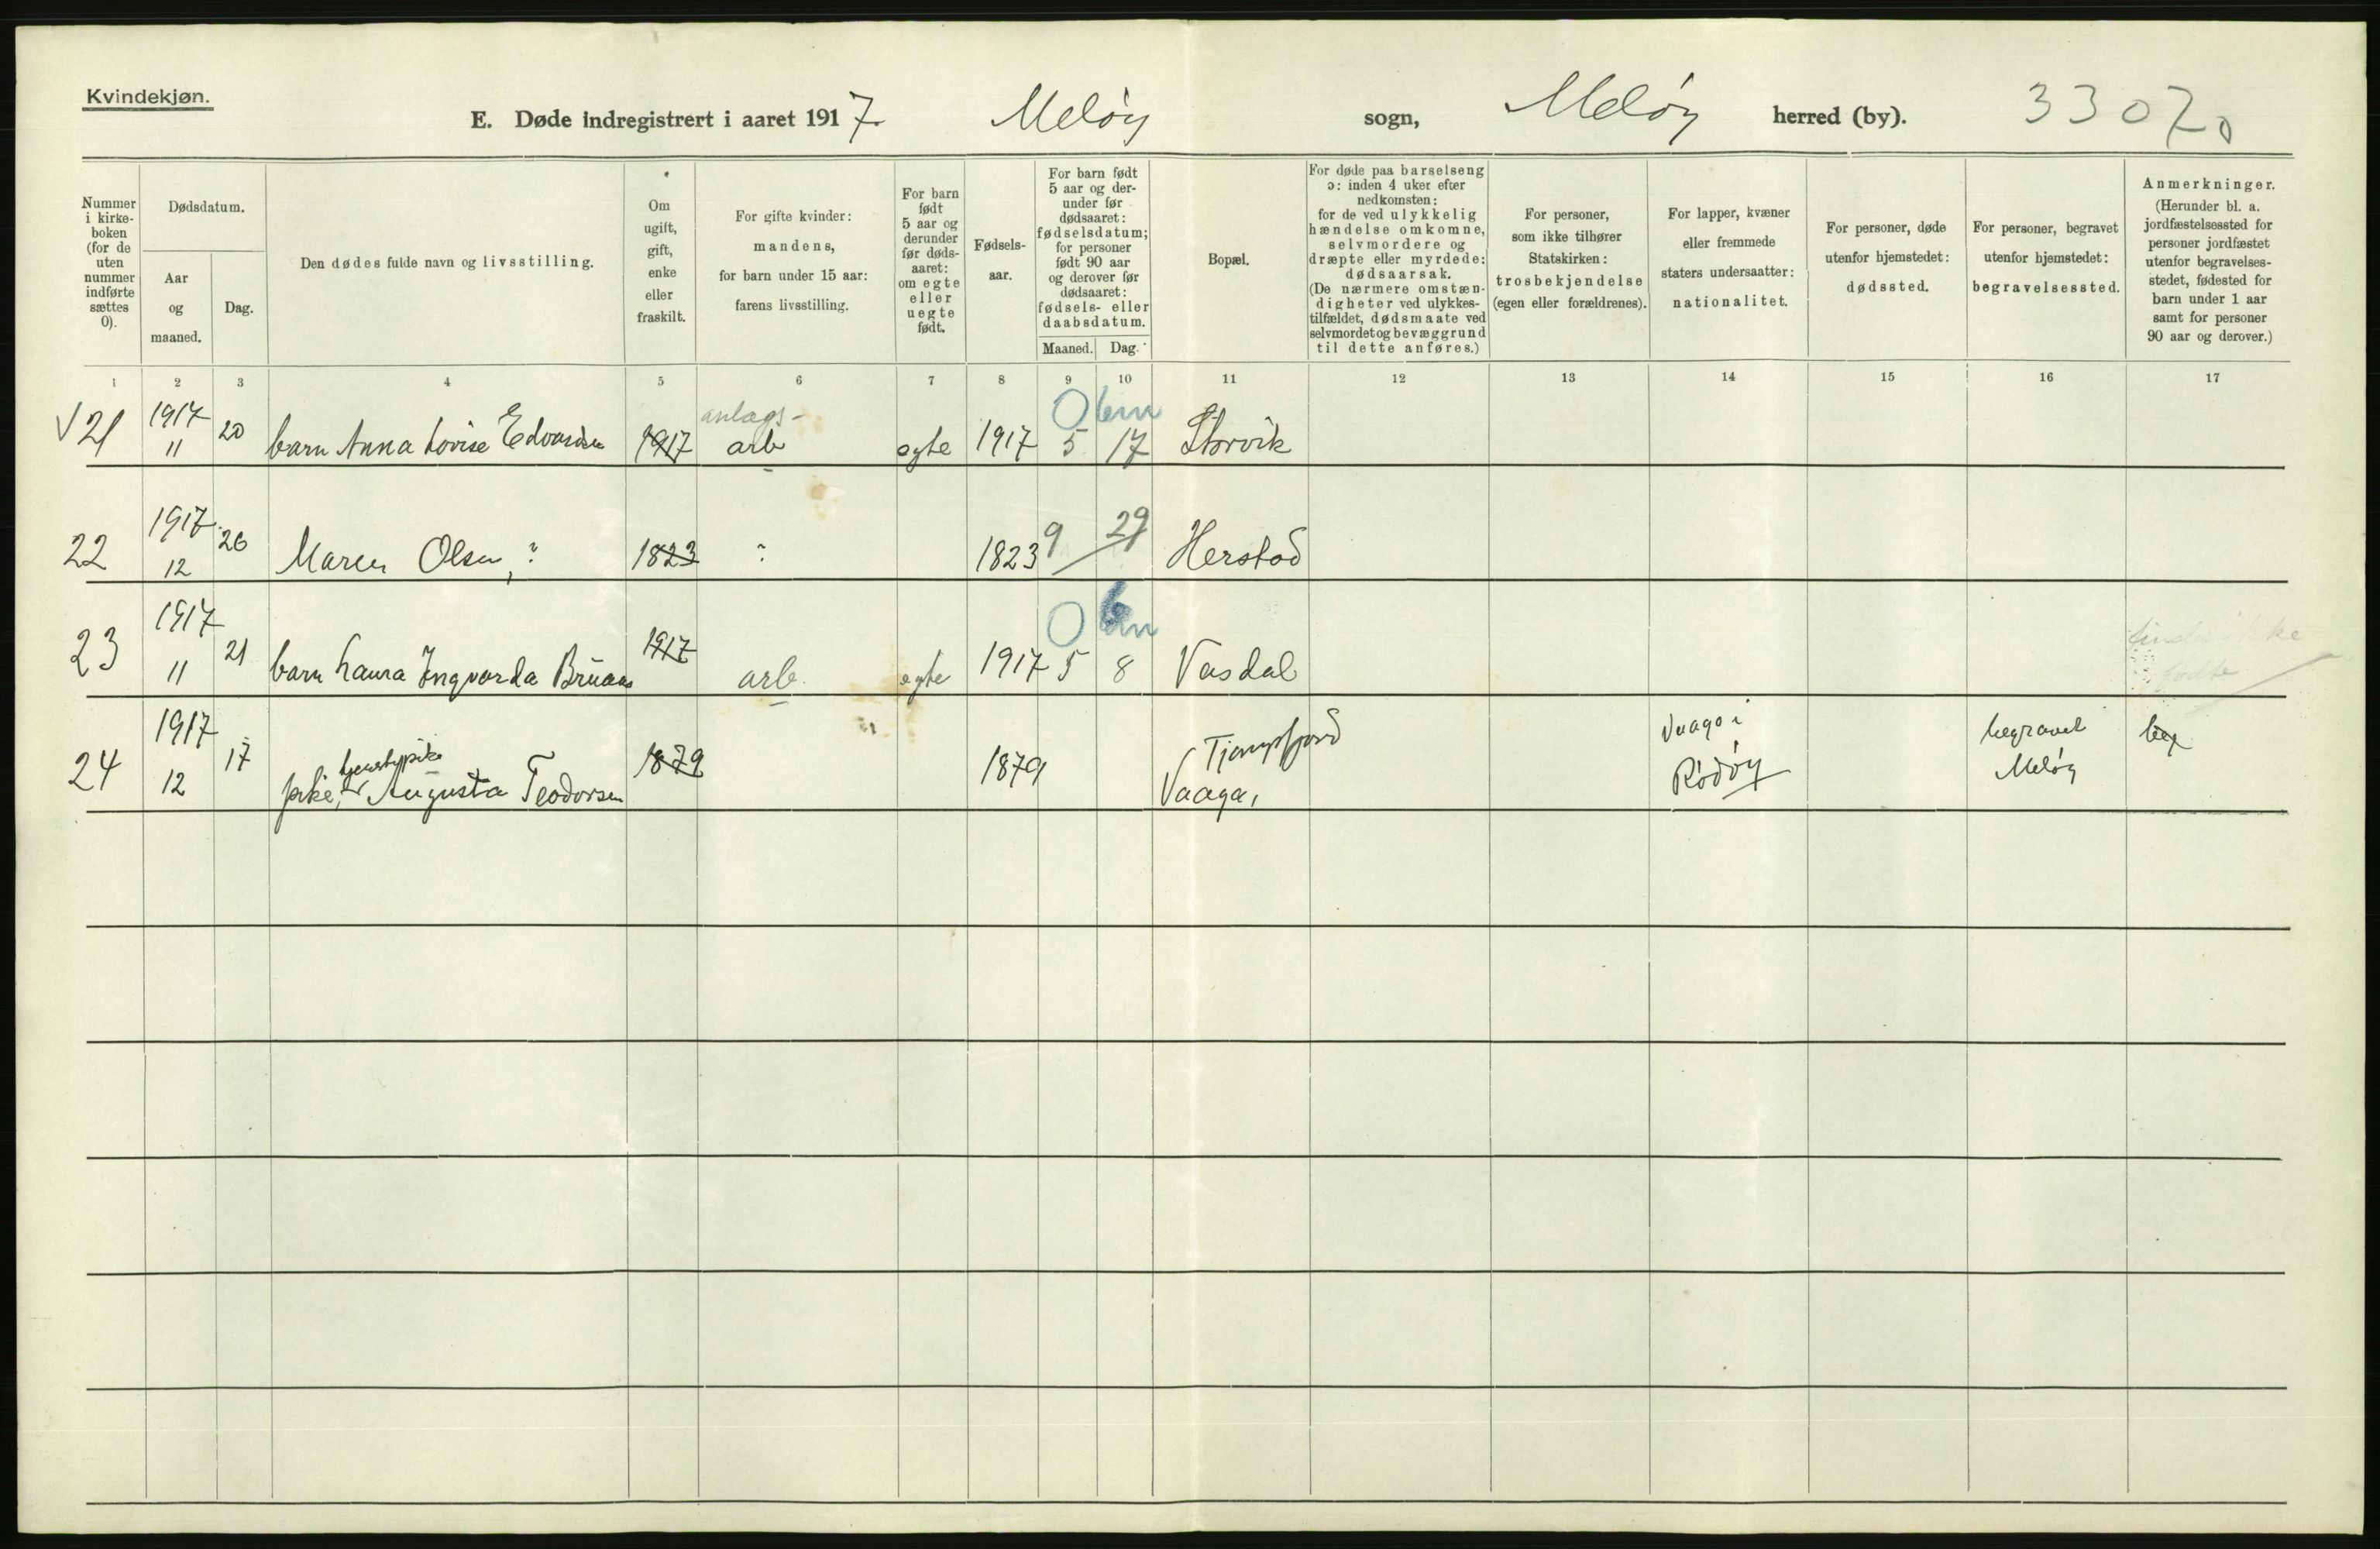 Kvindekjøn.
E. Døde indregistrert i aaret 1917. Meløy sogn, Meløy herred (by). 3307
Nummer i kirke-boken (for de uten nummer indførte sættes 0).
Dødsdatum.
Aar og maaned.
Dag.
Den dødes fulde navn og livsstilling.
Om ugift, gift, enke eller fraskilt.
For gifte kvinder: mandens, for barn under 15 aar: farens livsstilling.
For barn født 5 aar og derunder før døds-aaret: om egte eller uegte født.
Fødsels-aar.
For barn født 5 aar og der-under før dødsaaret: fødselsdatum; for personer født 90 aar og derover før dødsaaret: fødsels- eller daabsdatum.
Maaned. Dag.
Bopæl.
For døde paa barselseng ɔ: inden 4 uker efter nedkomsten: for de ved ulykkelig hændelse omkomne, selvmordere og dræpte eller myrdede: dødsaarsak. (De nærmere omstæn-digheter ved ulykkes-tilfældet, dødsmaate ved selvmordet og bevæggrund til dette anføres.)
For personer, som ikke tilhører Statskirken: trosbekjendelse (egen eller forældrenes).
For lapper, kvæner eller fremmede staters undersaatter: nationalitet.
For personer, døde utenfor hjemstedet: dødssted.
For personer, begravet utenfor hjemstedet: begravelsessted.
Anmerkninger. (Herunder bl. a. jordfæstelsessted for personer jordfæstet utenfor begravelses-stedet, fødested for barn under 1 aar samt for personer 90 aar og derover.)
1 2 3 4 5 6 7 8 9 10 11 12 13 14 15 16 17
√ 21 1917 11 20 barn Anna Lovise Edvardsen 1917 anlægs- arb egte 1917 5 17 Storvik
0 6m
22 1917 12 26 Maren Olsen, ? 1823 ? 1823 9 29 Herstad
23 1917 11 21 barn Laura Ingvarda Bruaas 1917 arb. egte 1917 5 8 Vasdal
0 6m
24 1917 12 17 pike, tjenestepike Augusta Teodorsen 1879 1879 Tjongsfjord Vaaga, Vaaga i Rødøy begravet Meløy